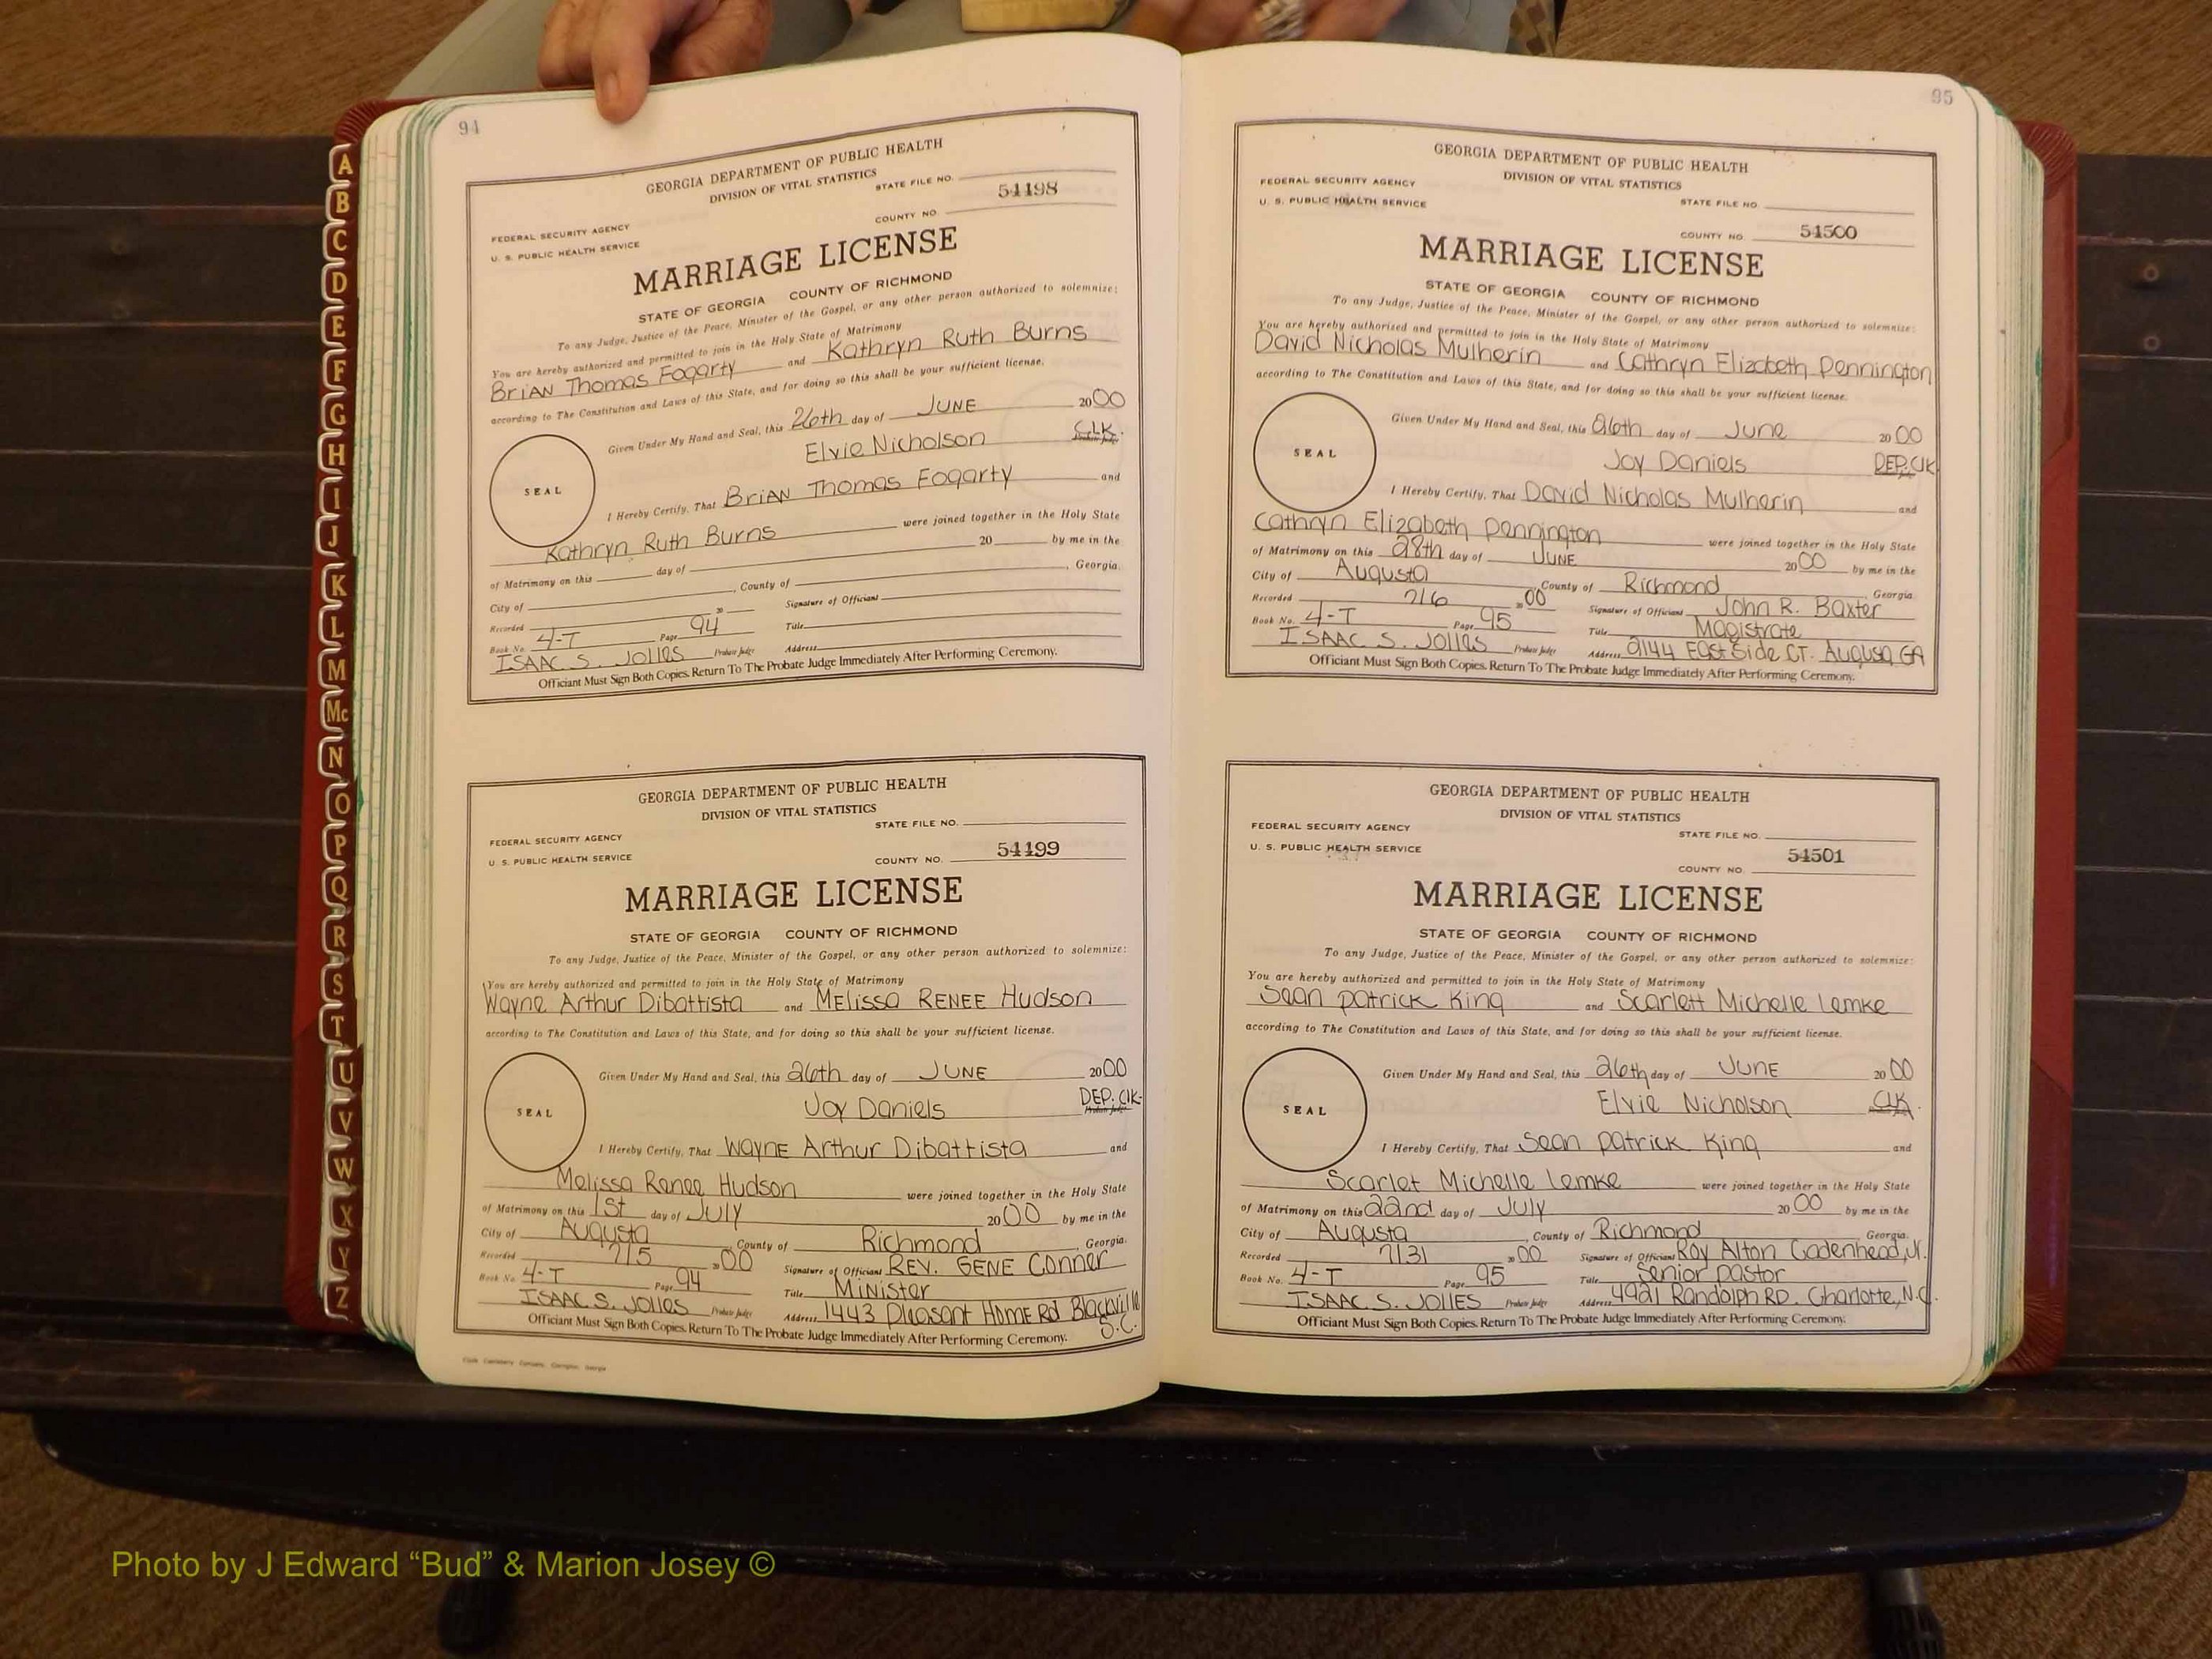 94
GEORGIA DEPARTMENT OF PUBLIC HEALTH
DIVISION OF VITAL STATISTICS
STATE FILE NO.
54498
COUNTY NO.
FEDERAL SECURITY AGENCY
U. S. PUBLIC HEALTH SERVICE
MARRIAGE LICENSE
STATE OF GEORGIA COUNTY OF RICHMOND
To any Judge, Justice of the Peace, Minister of the Gospel, or any other person authorized to solemnize:
You are hereby authorized and permitted to join in the Holy State of Matrimony
Brian Thomas Fogarty and Kathryn Ruth Burns
according to The Constitution and Laws of this State, and for doing so this shall be your sufficient license.
Given Under My Hand and Seal, this 26th day of JUNE 2000
Elvie Nicholson CLK.
SEAL
I Hereby Certify, That Brian Thomas Fogarty and
Kathryn Ruth Burns were joined together in the Holy State
of Matrimony on this day of 20 by me in the
City of , County of , Georgia.
Recorded 20 Signature of Official
Book No. 4-T Page 94 Title
ISAAC S. JOLLES Probate Judge Address
Officiant Must Sign Both Copies. Return To The Probate Judge Immediately After Performing Ceremony.
GEORGIA DEPARTMENT OF PUBLIC HEALTH
DIVISION OF VITAL STATISTICS
STATE FILE NO.
FEDERAL SECURITY AGENCY
U. S. PUBLIC HEALTH SERVICE
COUNTY NO. 54499
MARRIAGE LICENSE
STATE OF GEORGIA COUNTY OF RICHMOND
To any Judge, Justice of the Peace, Minister of the Gospel, or any other person authorized to solemnize:
You are hereby authorized and permitted to join in the Holy State of Matrimony
Wayne Arthur Dibattista and Melissa RENEE Hudson
according to The Constitution and Laws of this State, and for doing so this shall be your sufficient license.
Given Under My Hand and Seal, this 26th day of JUNE 2000
Joy Daniels DEP. Clk.
Probate Judge
SEAL
I Hereby Certify, That Wayne Arthur Dibattista and
Melissa Renee Hudson were joined together in the Holy State
of Matrimony on this 1st day of July 2000 by me in the
City of Augusta, County of Richmond, Georgia.
Recorded 7/5 2000 Signature of Official REV. GENE Conner
Book No. 4-T Page 94 Title Minister
ISAAC S. JOLLES Probate Judge Address 1443 Pleasant Home Rd Blackville
S.C.
Officiant Must Sign Both Copies. Return To The Probate Judge Immediately After Performing Ceremony.
95
GEORGIA DEPARTMENT OF PUBLIC HEALTH
DIVISION OF VITAL STATISTICS
FEDERAL SECURITY AGENCY
U. S. PUBLIC HEALTH SERVICE
STATE FILE NO.
COUNTY NO. 54500
MARRIAGE LICENSE
STATE OF GEORGIA COUNTY OF RICHMOND
To any Judge, Justice of the Peace, Minister of the Gospel, or any other person authorized to solemnize:
You are hereby authorized and permitted to join in the Holy State of Matrimony
David Nicholas Mulherin and Cathryn Elizabeth Pennington
according to The Constitution and Laws of this State, and for doing so this shall be your sufficient license.
Given Under My Hand and Seal, this 26th day of June 2000
Joy Daniels DEP. Clk
SEAL
I Hereby Certify, That David Nicholas Mulherin and
Cathryn Elizabeth Pennington were joined together in the Holy State
of Matrimony on this 28th day of JUNE 2000 by me in the
City of Augusta, County of Richmond, Georgia.
Recorded 7/6 2000 Signature of Official John R. Baxter
Book No. 4-T Page 95 Title Magistrate
ISAAC. S. JOLLES Probate Judge Address 2144 East Side CT. Augusa GA
Officiant Must Sign Both Copies. Return To The Probate Judge Immediately After Performing Ceremony.
GEORGIA DEPARTMENT OF PUBLIC HEALTH
DIVISION OF VITAL STATISTICS
FEDERAL SECURITY AGENCY
U. S. PUBLIC HEALTH SERVICE
STATE FILE NO.
54501
COUNTY NO.
MARRIAGE LICENSE
STATE OF GEORGIA COUNTY OF RICHMOND
To any Judge, Justice of the Peace, Minister of the Gospel, or any other person authorized to solemnize:
You are hereby authorized and permitted to join in the Holy State of Matrimony
Sean Patrick King and Scarlett Michelle Lemke
according to The Constitution and Laws of this State, and for doing so this shall be your sufficient license.
Given Under My Hand and Seal, this 26th day of JUNE 2000
Elvie Nicholson Clk.
SEAL
I Hereby Certify, That Sean Patrick King and
Scarlet Michelle Lemke were joined together in the Holy State
of Matrimony on this 22nd day of July 2000 by me in the
City of Augusta, County of Richmond, Georgia.
Recorded 7/31 2000 Signature of Official Roy Alton Cadenhead, Jr.
Book No. 4-T Page 95 Title Senior Pastor
ISAAC. S. JOLLES Probate Judge Address 4921 Randolph RD. Charlotte, N.C.
Officiant Must Sign Both Copies. Return To The Probate Judge Immediately After Performing Ceremony.
A
B
C
D
E
F
G
H
I
J
K
L
M
Mc
N
O
P
Q
R
S
T
U
V
W
X
Y
Z
Photo by J Edward “Bud” & Marion Josey ©